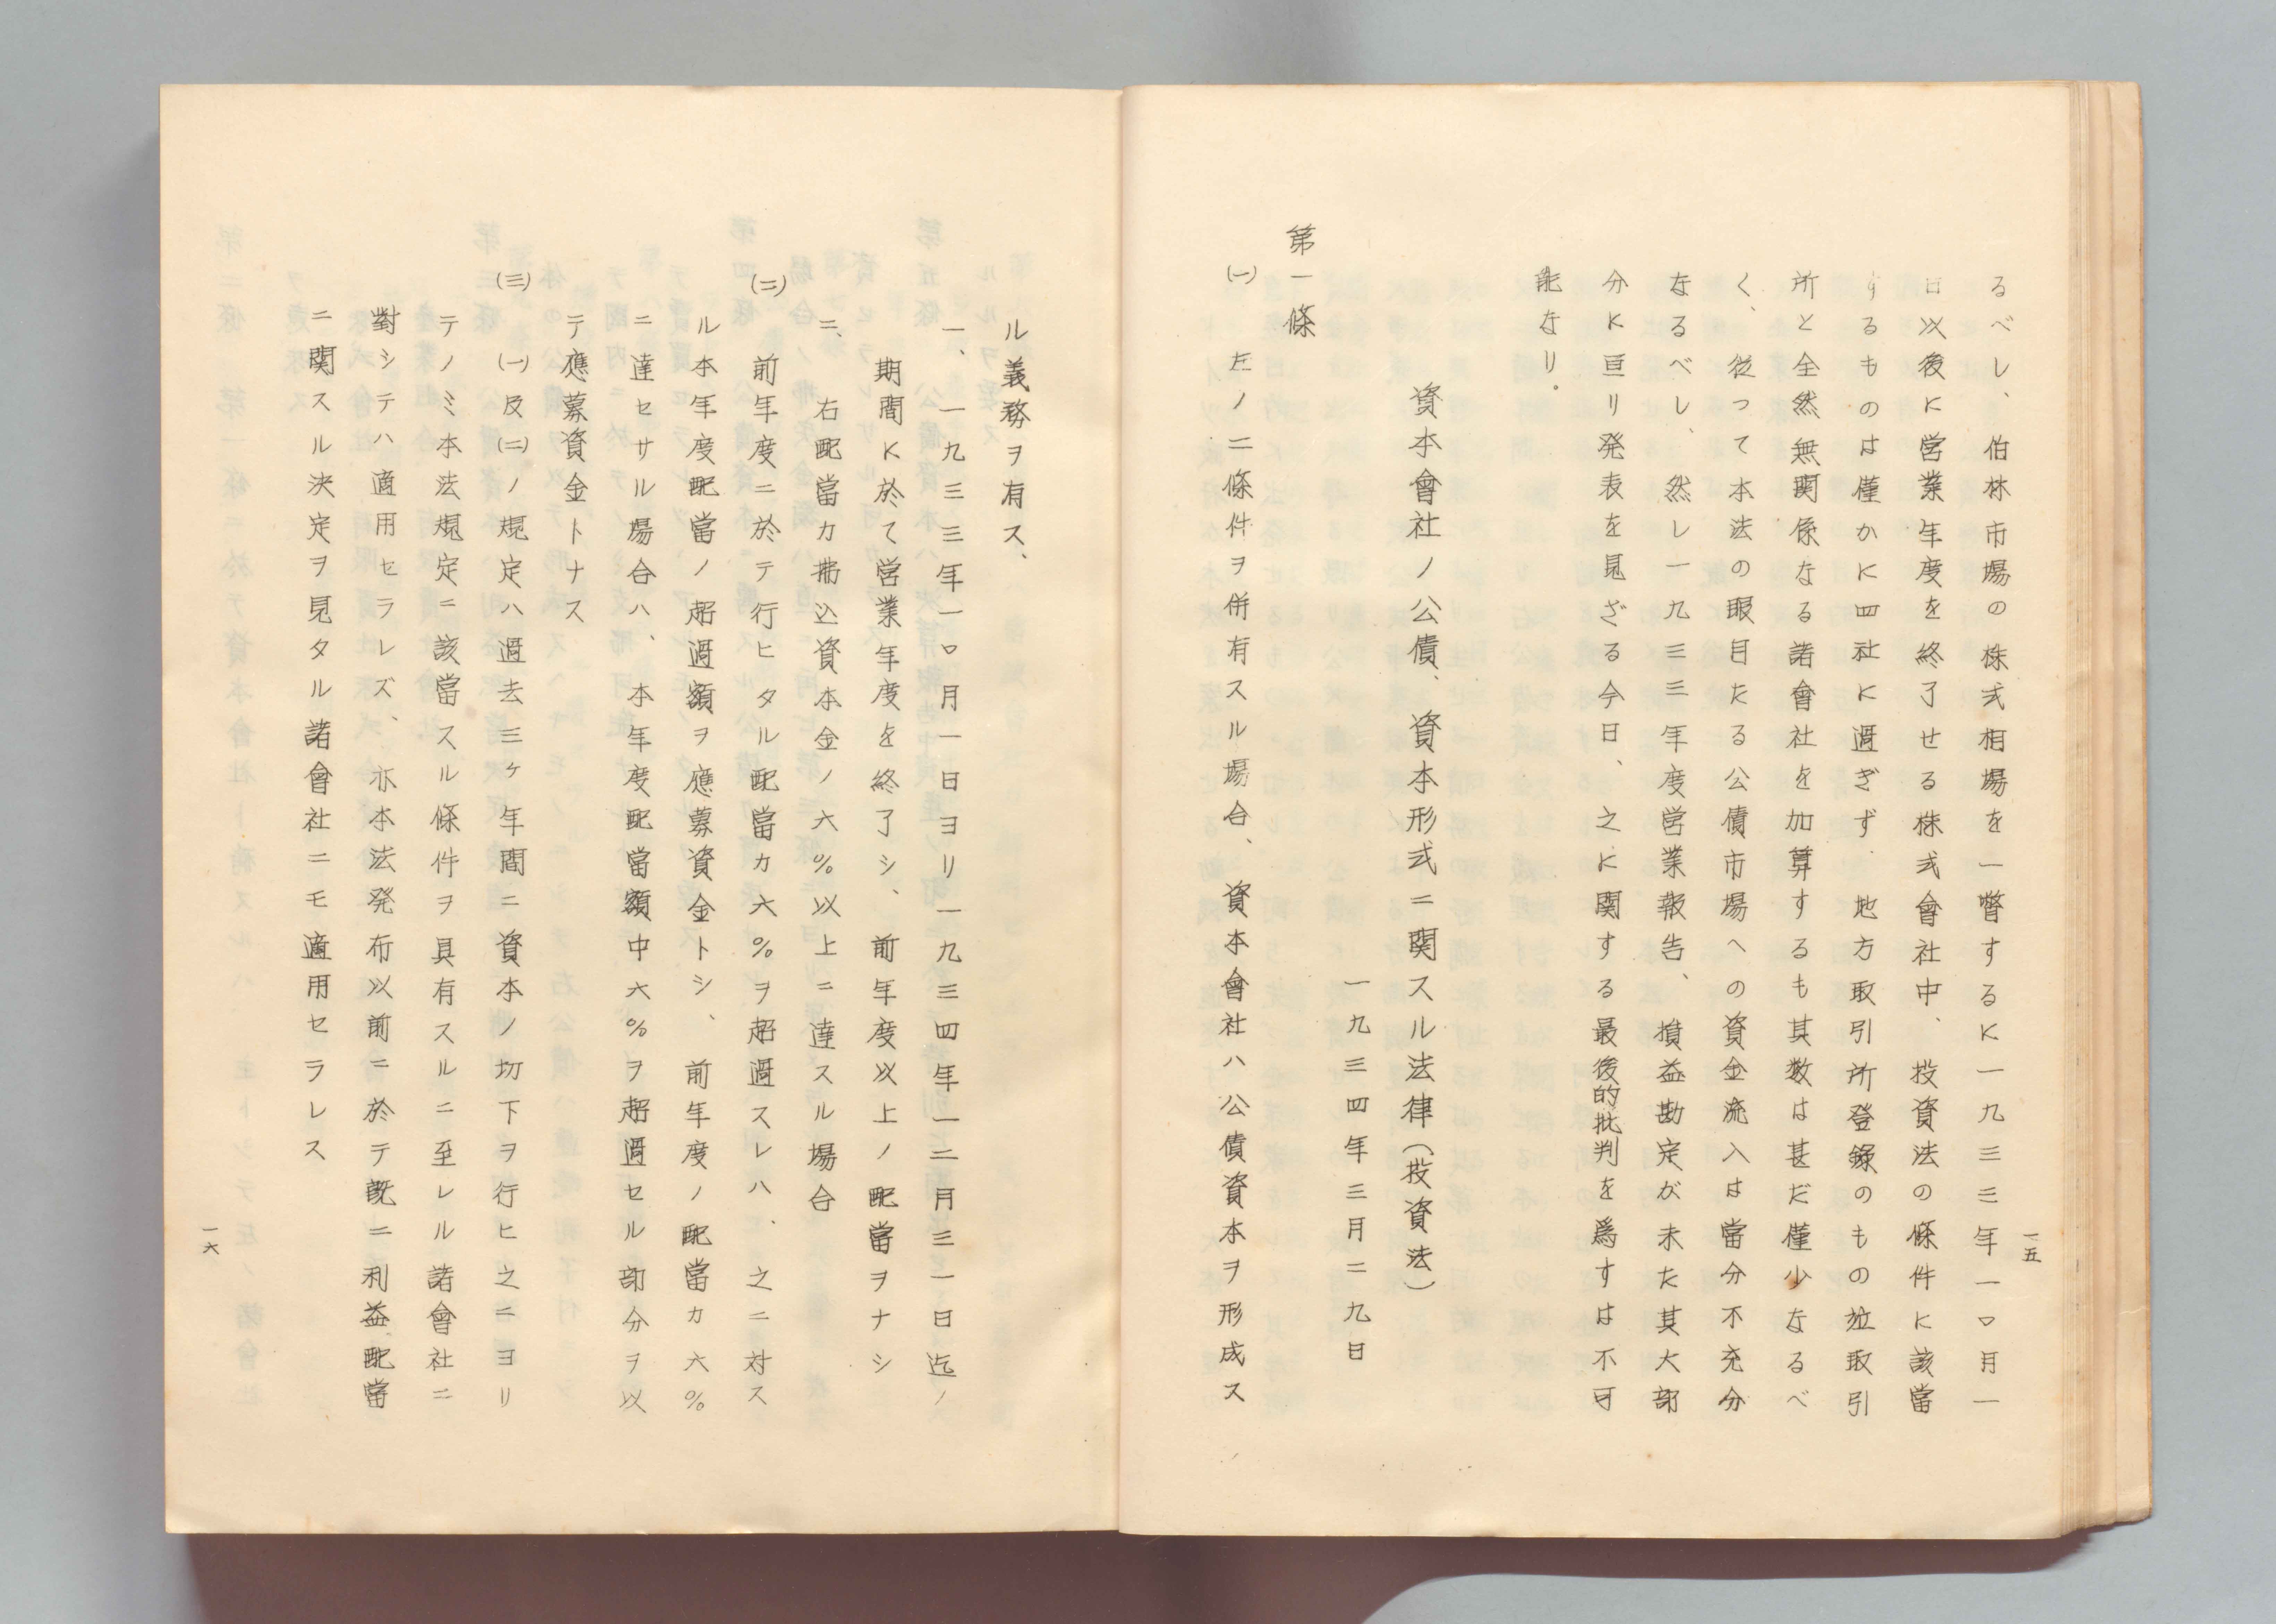 一五
るべし、伯林市場の株式相場を一瞥するに一九三三年一〇月一
日以後に営業年度を終了せる株式會社中、投資法の條件に該當
するものは僅かに四社に過ぎず、地方取引所登録のもの竝取引
所と全然無関係なる諸會社を加算するも其数は甚だ僅少なるべ
く、従って本法の眼目たる公債市場への資金流入は當分不充分
なるべし、然し一九三三年度営業報告、損益勘定が未た其大部
分に亘り発表を見ざる今日、之に関する最後的批判を爲すは不可
能なり。
資本會社ノ公債、資本形式ニ関スル法律(投資法)
一九三四年三月二九日
第一條
(一) 左ノ二條件ヲ併有スル場合、資本會社ハ公債資本ヲ形成ス
ル義務ヲ有ス、
一、一九三三年一〇月一日ヨリ一九三四年一二月三一日迄ノ
期間に於て営業年度を終了シ、前年度以上ノ配當ヲナシ
二、右配當カ拂込資本金ノ六%以上ニ達スル場合
(二) 前年度ニ於テ行ヒタル配當カ六%ヲ超過スレハ、之ニ対ス
ル本年度配當ノ超過額ヲ應募資金トシ、前年度ノ配當カ六%
ニ達セサル場合ハ、本年度配當額中六%ヲ超過セル部分ヲ以
テ應募資金トナス
(三) (一)及(二)ノ規定ハ過去三ヶ年間ニ資本ノ切下ヲ行ヒ之ニヨリ
テノミ本法規定ニ該當スル條件ヲ具有スルニ至レル諸會社ニ
對シテハ適用セラレズ、亦本法発布以前ニ於テ既ニ利益配當
ニ関スル決定ヲ見タル諸會社ニモ適用セラレス
一六